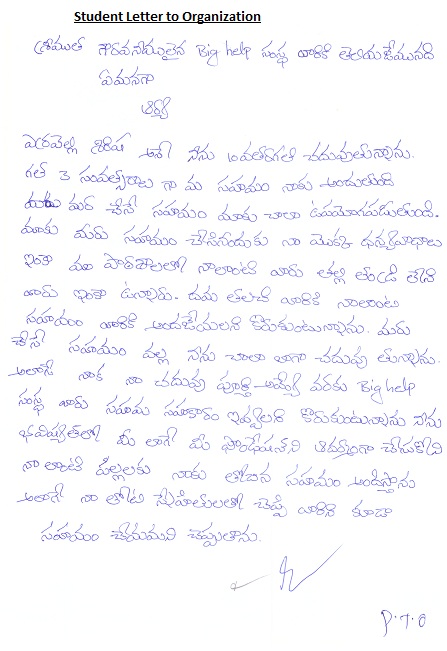 Student Letter to Organization
శ్రీయుత గౌరవనీయులైన Big help సంస్థ వారికి తెలియజేయునది
ఏమనగా
ఆర్య
ఎర్రవెల్లి శిరీష అనే నేను 10వతరగతి చదువుతున్నాను.
గత 3 సంవత్సరాలు గా మీ సహాయం నాకు అందుతుంది
మీరు చేసే సహాయం మాకు చాలా ఉపయోగపడుతుంది.
మాకు మీరు సహాయం చేసినందుకు నా యొక్క ధన్యవాదాలు
ఇంకా మా పాఠశాలలో నాలాంటి వారు తల్లి తండ్రి లేని
వారు ఇంకా ఉన్నారు. వారికి నాలాంటి
సహాయం వారికి అందజేయాలని కోరుకుంటున్నాను. మీరు
చేసే సహాయం వల్ల నేను చాలా బాగా చదువు తున్నాను.
అలాగే నాకు నా చదువు పూర్తి అయ్యే వరకు Big help
సంస్థ వారు సహాయ సహకారం ఇవ్వాలని కోరుకుంటున్నాను నేను
భవిష్యత్‌లో మీ లాగే మీ ఆదర్శంగా చేసుకొని
నా లాంటి పిల్లలకు నాకు తోచిన సహాయం అందిస్తాను
అలాగే నా తోటి స్నేహితులతో చెప్పి వారిని కూడా
సహాయం చేయమని చెప్పుతాను.
P.T.O